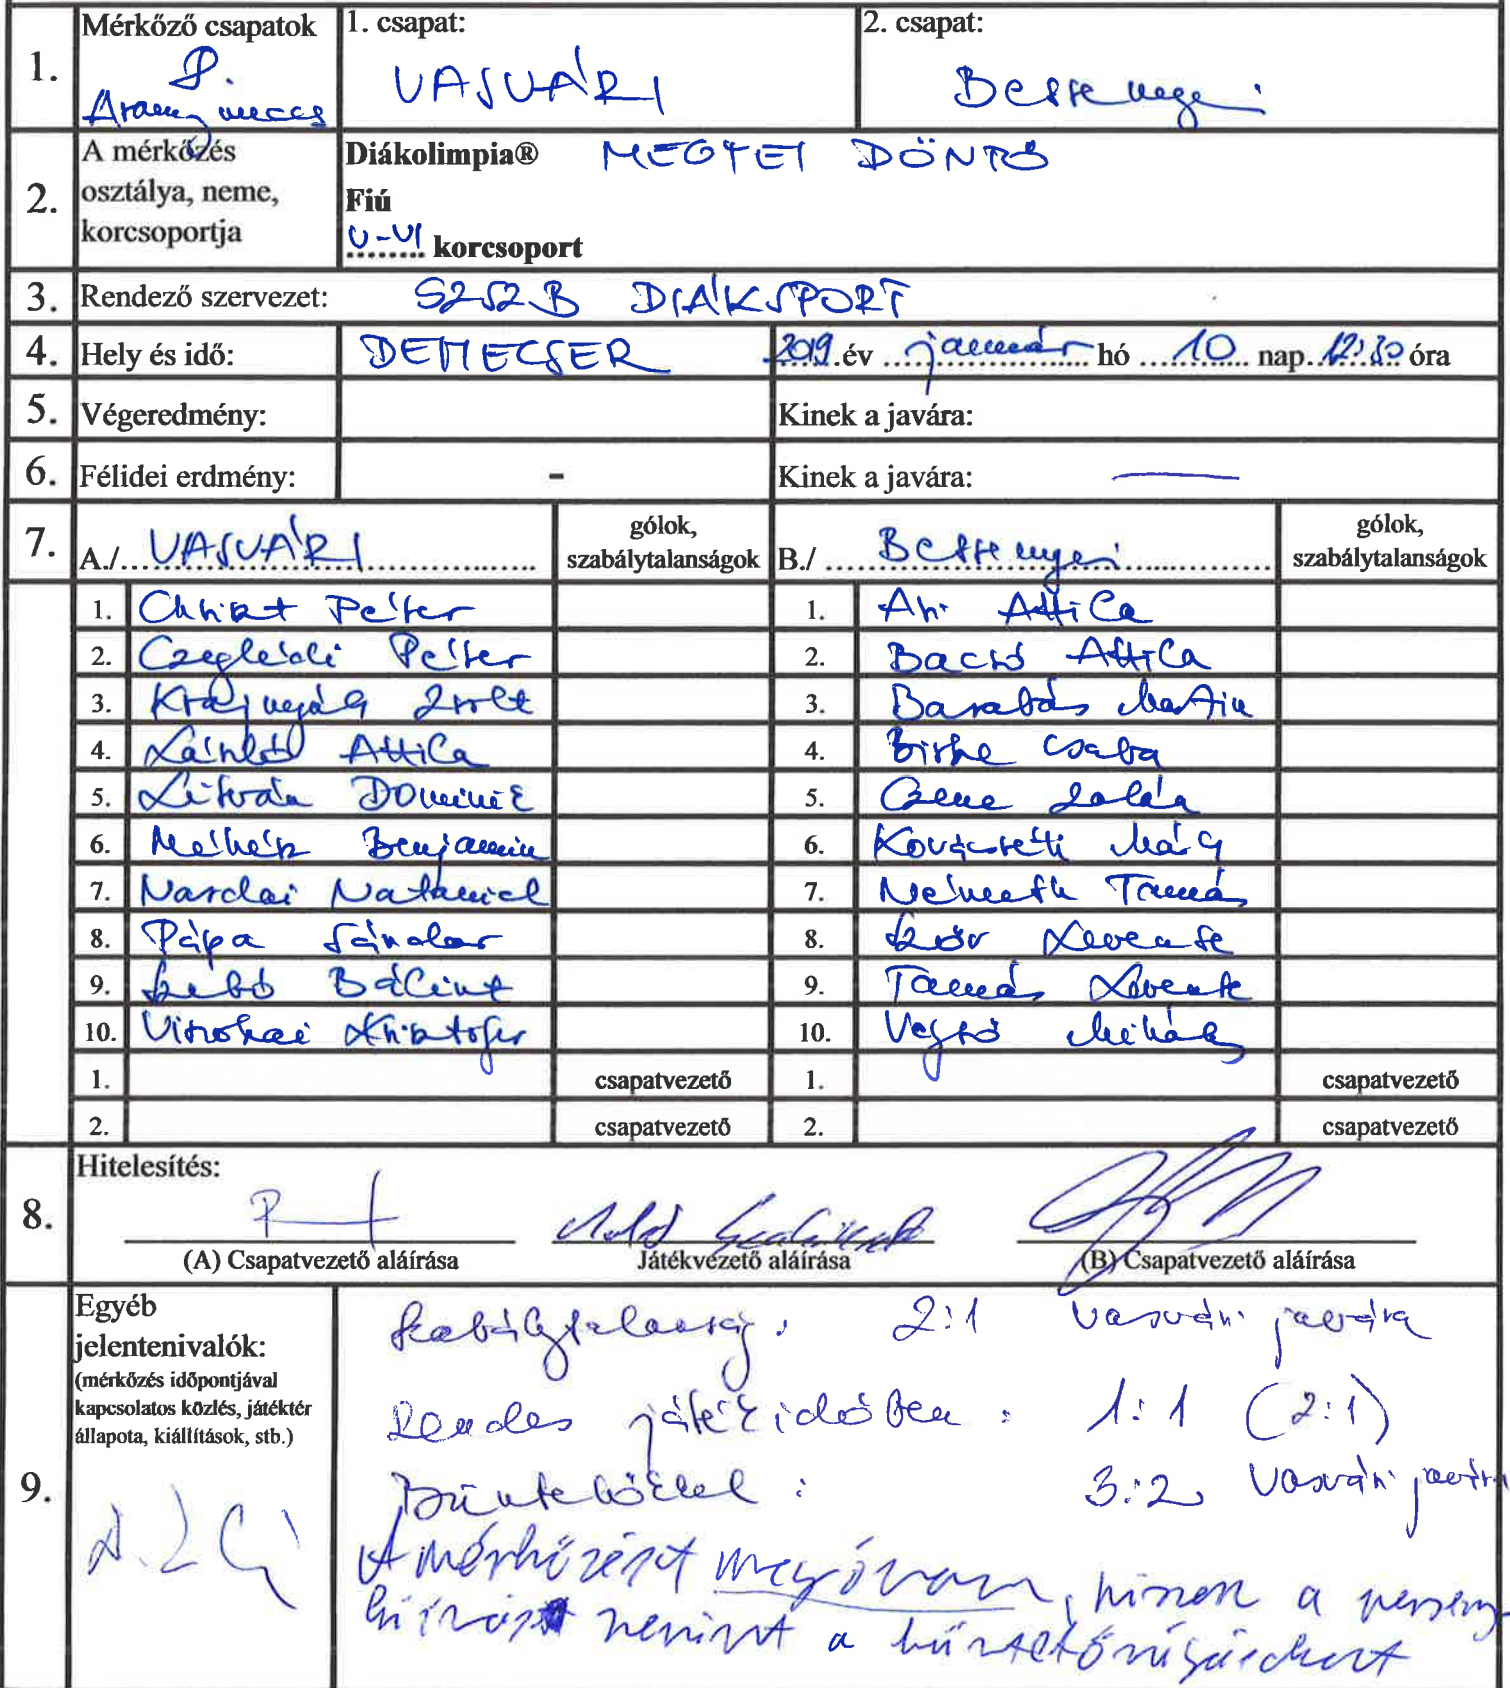 1. Mérkőző csapatok 1. csapat: 2. csapat:
VASVÁRI Bessenyei
Arany meccs
2. A mérkőzés osztálya, neme, korcsoportja
Diákolimpia® MEGYEI DÖNTŐ
Fiú
V-VI korcsoport
3. Rendező szervezet: SZSZB DIÁKSPORT
4. Hely és idő: DEMECSER 2019. év január hó 10 nap 12:30 óra
5. Végeredmény: Kinek a javára:
6. Félidei erdmény: - Kinek a javára: —
7. A./ VASVÁRI gólok, szabálytalanságok B./ Bessenyei gólok, szabálytalanságok
1. Péter 1. Attila
2. Czeglédi Péter 2. Bacsó Attila
3. Krajnyák Zsolt 3. Barabás Martin
4. László Attila 4. Birke Csaba
5. Litván Dominik 5. Czene Zalán
6. Benjamin 6. Márk
7. Nardai Natániel 7. Németh Tamás
8. Pápa Sándor 8. Szőr Levente
9. Szabó Bálint 9. Tamás Levente
10. Kristofer 10. Végső Mihály
1. csapatvezető 1. csapatvezető
2. csapatvezető 2. csapatvezető
8. Hitelesítés:
(A) Csapatvezető aláírása Játékvezető aláírása (B) Csapatvezető aláírása
9. Egyéb jelentenivalók:
(mérkőzés időpontjával kapcsolatos közlés, játéktér állapota, kiállítások, stb.)
Szabálytalanság: 2:1 Vasvári javára
Rendes játékidőben: 1:1 (2:1)
Büntetőkkel: 3:2 Vasvári javára
A mérkőzést megóvom, hiszen a verseny-
kiírás szerint a büntetőrúgásokat